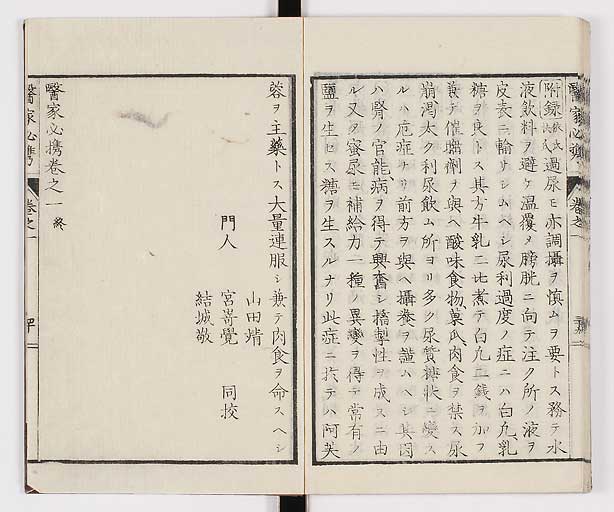 醫家必携 卷之一
附錄 過尿モ亦調攝ヲ愼ムヲ要トス務テ水
液飲料ヲ避ケ温覆メ膀胱ニ向テ注ク所ノ液ヲ
皮表ニ輸サシムヘシ尿利過度ノ症ニハ白丸乳
糖ヲ良トス其方牛乳ニ比煮テ白丸二錢ヲ加フ
兼テ催喘劑ヲ與ヘ酸味食物菓瓜肉食ヲ禁ス尿
崩渇太ク利尿飲ム所ヨリ多ク尿質糖狀ニ變ス
ルハ危症ナリ前方ヲ與ヘ攝養ヲ謹ムヘシ其因
ハ腎ノ官能病ヲ得テ興奮シ撟掣性ヲ成スニ由
ル又タ蜜尿ニ補給力一種ノ異變ヲ得テ常有ノ
鹽ヲ生セス糖ヲ生スルナリ此症ニ於テハ阿芙
蓉ヲ主藥トス大量連服シ兼テ肉食ヲ命スヘシ
山田靖
門人 宮嵜覺 同校
結城敬
醫家必携卷之一 終
醫家必携 卷之一